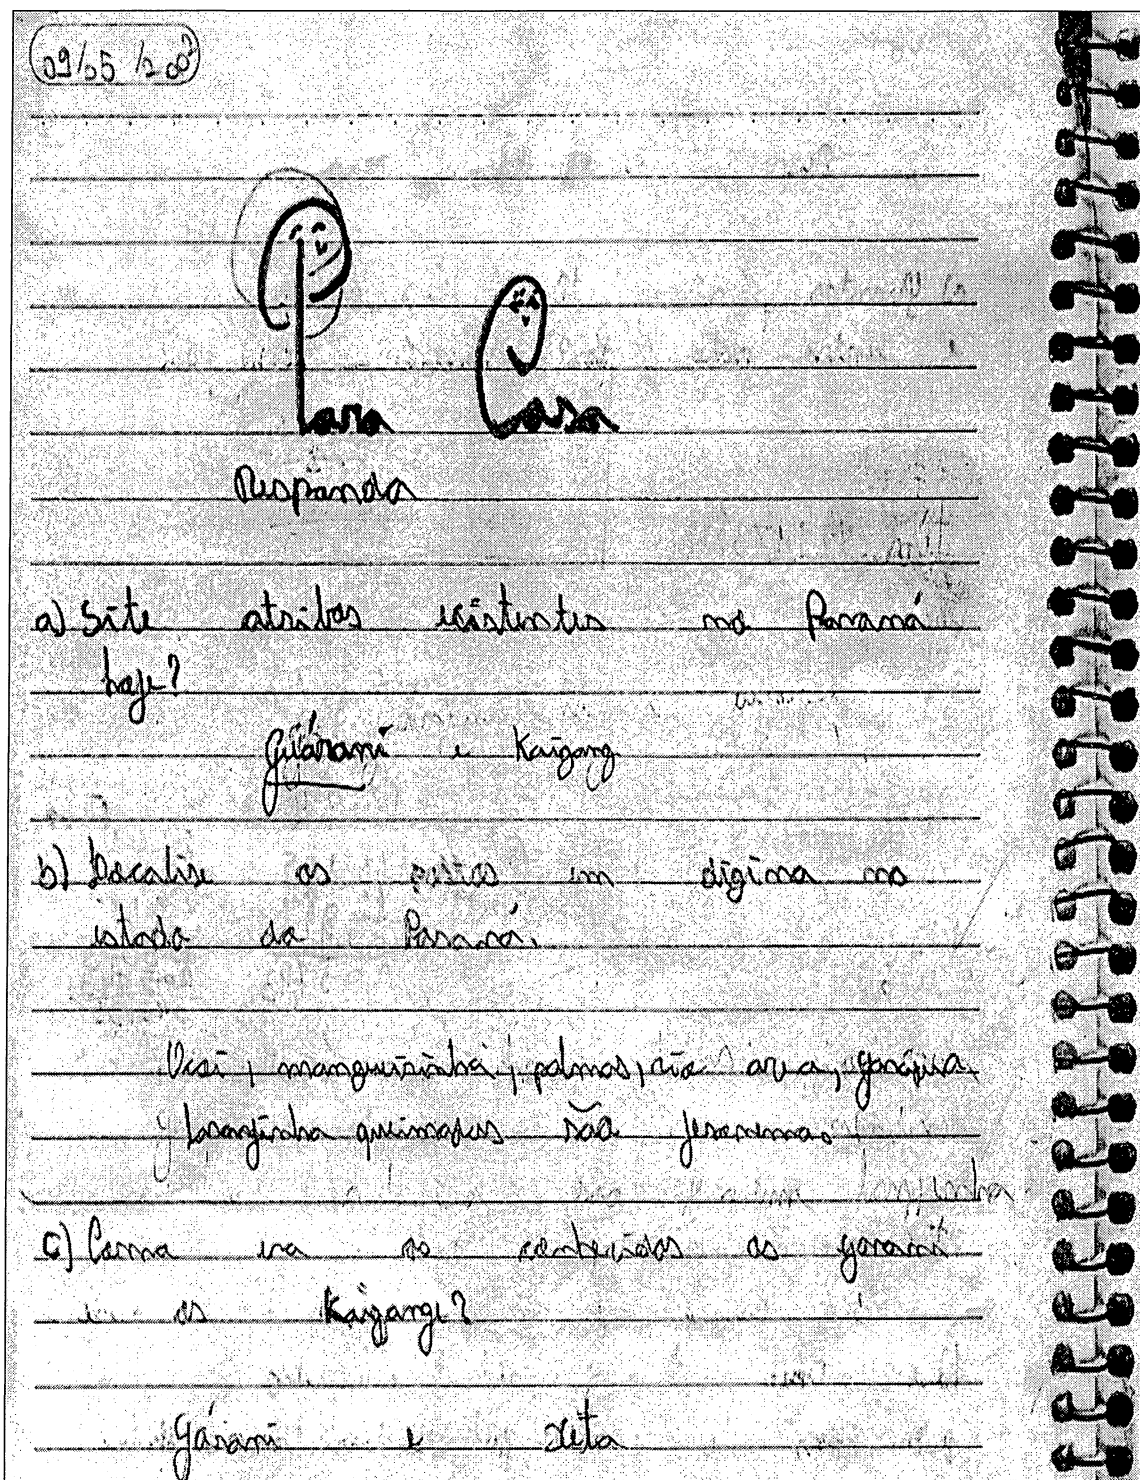 09/05/2002
Para Casa
Respanda
a) Site atribos existentes no Paraná
hoje?
Guárani e Kaigang
b) Localise os postos em digina no
estado do Paraná.
mangueirinha, palmas, rio
laranjinha queimapas são jeronimo
c) Como era os conhecidos os garani
e os Kaigange?
Gárani e xeta